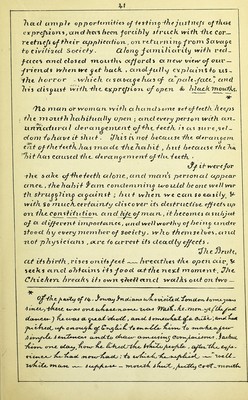 41
had ample opportunities of testing the justness of those
expressions, and has been forcibly struck with the cor-
rectness of their application, on returning from Savage
to civilised Society. Along familiarity with red-
faces and closed mouths affords a new view of our
friends when we get back, and fully explains to us
the horror which a savage has of a "pale-face," and
his disgust with the expression of open & black mouths.
*
No man or woman with a handsome set of teeth keeps
the mouth habitually open; and every person with an
unnatural derangement of the teeth, is as sure, sel-
dom to have it shut. This is not because the derangem
ent of the teeth has made the habit, but because the ha
bit has caused the derangement of the teeth.
If it were for
the sake of the teeth alone, and man's personal appear
ance, the habit I am condemning would be one well wor
th struggling against; but when we can so easily, &
with so much certainty discover its destructive effects up
on the constitution and life of man, it becomes a subject
of a different importance, and well worthy of being under
stood by every member of society, who themselves, and
not physicians, are to arrest its deadly effects.
The Brute,
at its birth, rises on its feet — breathes the open air, &
seeks and obtains its food at the next moment. The
Chicken breaks its own shell and walks out on two —
* Of the party of 14 Ioway Indians who visited London some years
since, there was one whose name was Wash-ke-mon-ye (the fast
dancer) he was a great droll, and somewhat of a critic; and had
picked up enough of English to enable him to make a few
simple sentences and to draw amusing comparisons. I asked
him one day, how he liked the White people, after the expe-
rience he had now had; to which he replied — "Well
white man — suppose — mouth shut, putty coot, mouth